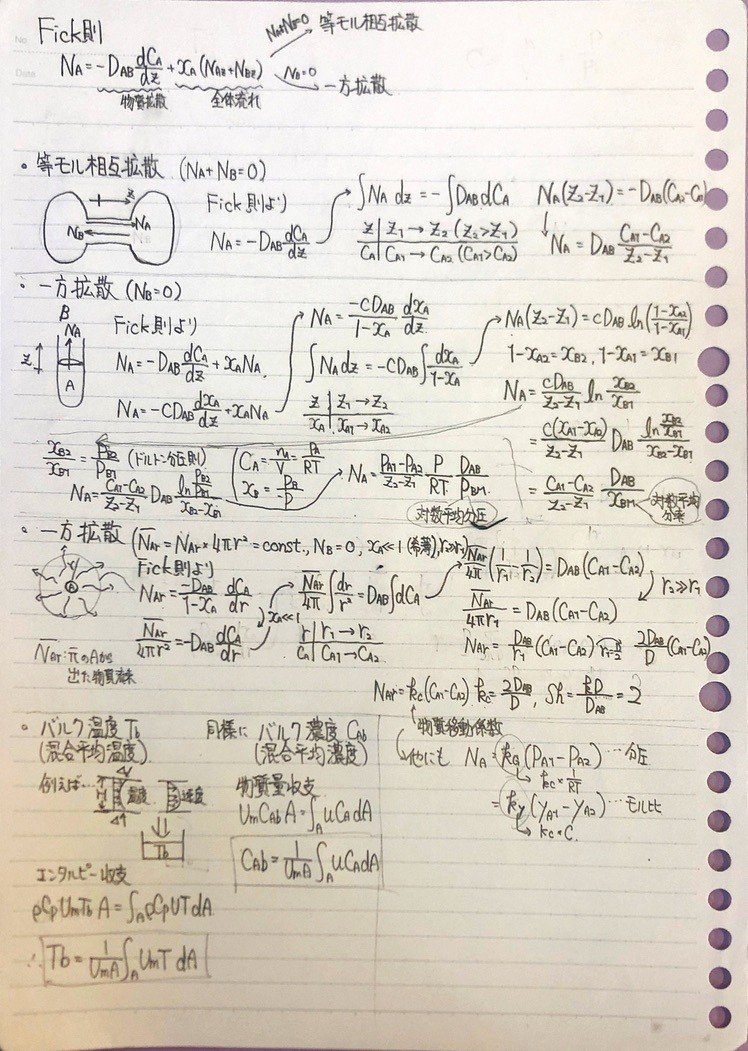 No.
Date
Fick則
N_A = -D_AB dC_A/dz + x_A(N_Az + N_Bz)
物質拡散 全体流れ
N_A+N_B=0 → 等モル相互拡散
N_B=0 → 一方拡散
・等モル相互拡散 (N_A + N_B = 0)
z
N_A
N_B
Fick則より
N_A = -D_AB dC_A/dz
∫N_A dz = -∫D_AB dC_A
z | z_1 → z_2 (z_2 > z_1)
C_A | C_A1 → C_A2 (C_A1 > C_A2)
N_A(z_2-z_1) = -D_AB(C_A2-C_A1)
↓ N_A = D_AB (C_A1-C_A2)/(z_2-z_1)
・一方拡散 (N_B=0)
B
N_A
z
A
Fick則より
N_A = -D_AB dC_A/dz + x_A N_A
N_A = -CD_AB dx_A/dz + x_A N_A
N_A = -CD_AB/(1-x_A) dx_A/dz
∫N_A dz = -CD_AB ∫ dx_A/(1-x_A)
z | z_1 → z_2
x_A | x_A1 → x_A2
N_A(z_2-z_1) = cD_AB ln((1-x_A2)/(1-x_A1))
1-x_A2 = x_B2, 1-x_A1 = x_B1
N_A = cD_AB/(z_2-z_1) ln x_B2/x_B1
= c(x_A1-x_A2)/(z_2-z_1) D_AB (ln x_B2/x_B1)/(x_B2-x_B1)
= (C_A1-C_A2)/(z_2-z_1) D_AB/x_BM
対数平均分率
x_B2/x_B1 = P_B2/P_B1 (ドルトン分圧則)
N_A = (C_A1-C_A2)/(z_2-z_1) D_AB (ln P_B2/P_B1)/(x_B2-x_B1)
C_A = n_A/V = P_A/RT
x_B = P_B/P
N_A = (P_A1-P_A2)/(z_2-z_1) P/RT D_AB/P_BM
対数平均分圧
・一方拡散 (N̅_Ar = N_Ar × 4πr² = const., N_B = 0, x_A≪1 (希薄), r_2≫r_1)
Fick則より
N_Ar = -D_AB/(1-x_A) dC_A/dr
x_A≪1
N̅_Ar/4πr² = -D_AB dC_A/dr
のAから
出た物質流束
N̅_Ar/4π ∫dr/r² = -D_AB∫dC_A
r | r_1 → r_2
C_A | C_A1 → C_A2
N̅_Ar/4π (1/r_1 - 1/r_2) = D_AB(C_A1-C_A2)
r_2≫r_1
N̅_Ar/4πr_1 = D_AB(C_A1-C_A2)
N_Ar = D_AB/r_1 (C_A1-C_A2) r_1=D/2 2D_AB/D (C_A1-C_A2)
N_Ar = k_c(C_A1-C_A2) k_c = 2D_AB/D, Sh = kD/D_AB = 2
物質移動係数
他にも N_A = k_G(P_A1-P_A2) … 分圧
k_c × 1/RT
= k_y(y_A1-y_A2) … モル比
k_c × C
・バルク温度 T_b
(混合平均温度)
例えば…
温度 速度
T_b
エンタルピー収支
ρC_pU_mT_b A = ∫_A ρC_pUT dA
∴ T_b = 1/(U_mA) ∫_A U_mT dA
同様に バルク濃度 C_Ab
(混合平均濃度)
物質量収支
U_mC_Ab A = ∫_A uC_A dA
C_Ab = 1/(U_mA) ∫_A uC_A dA